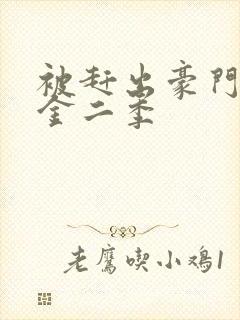 被赶出豪門
金二季
老鹰喫小鸡1